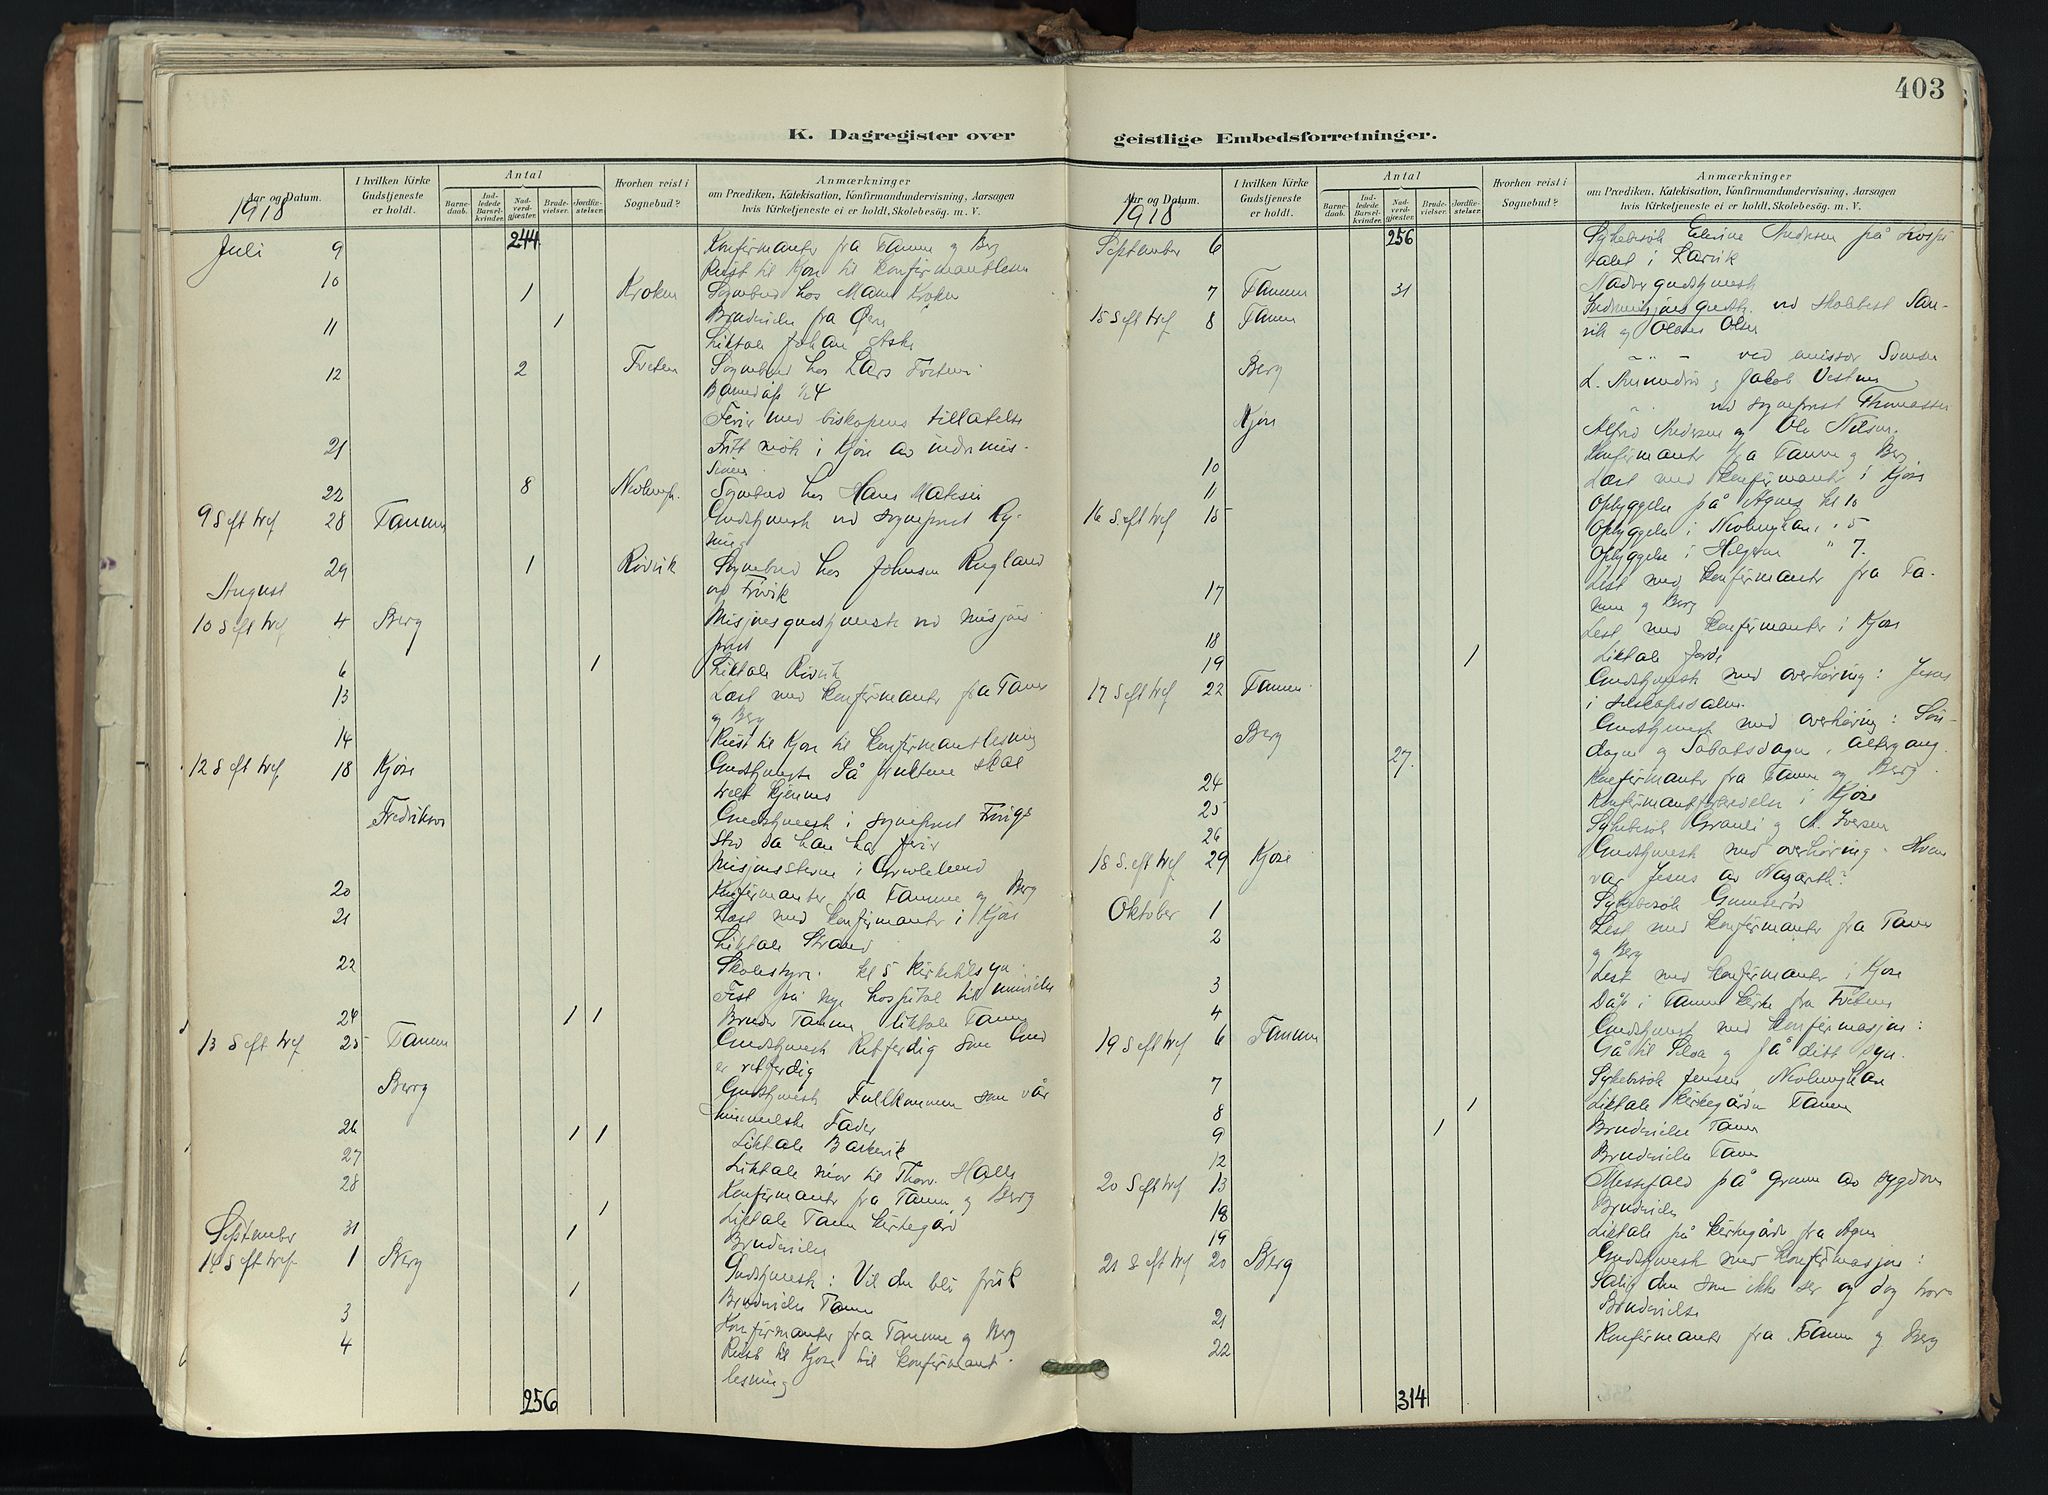 403
K. Dagregister over geistlige Embedsforretninger.
Aar og Datum.
1918
I hvilken Kirke Gudstjeneste er holdt.
Antal
Barnedaab.
Indledede Barselkvinder.
Nadverdgjæster.
Brudevielser.
Jordfæstelser.
Hvorhen reist i Sognebud?
Anmærkninger
om Prædiken, Katekisation, Konfirmandundervisning, Aarsagen
hvis Kirketjeneste ei er holdt, Skolebesøg. m. V.
Juli 9 244 Konfirmanter fra Tanum og Berg
Reist til Kjose til konfirmantlesn
10 1 Kroken Sognebud hos Kroken
11 1 Brudevielse fra
Liktale Johan Aske
12 2 Tveten Sognebud hos Lars Tveten
Barnedåp
Ferie med biskopens tillatelse
21 Fritt møte i Kjose av indremis-
sionen
22 8 Nevlungh. Sognebud hos Hans
9 S eft tref 28 Tanum Gudstjeneste ved sogneprest Ry-
ning
29 1 Rövik Sognebud hos Johnsen Rugland
August
10 S eft tref 4 Berg Misjonsgudstjeneste ved misjons
prest
6 1 Liktale Rövik
13 Læst med konfirmanter fra Tanum
og Berg
14 Reist til Kjose til konfirmantlesning
12 S eft tref 18 Kjose Gudstjeneste På frukten skal
treet kjennes
Fredriksvern Gudstjeneste i sogneprest
sted da han har ferie
Misjonsstevne i
20 Konfirmanter fra Tanum og Berg
21 Læst med konfirmanter i Kjose
Liktale Strand
22 Skolestyre. kl 5 kirketilsyn.
Fest på nye hospital
24 1 1 Brudev Tanum, liktale Tanum
13 S eft tref 25 Tanum Gudstjeneste Retferdig som Gud
er retferdig
Berg Gudstjeneste Fullkommen som vår
himmelske Fader
26 1 1 Liktale
27 Liktale mor til Thorv. Halle
28 Konfirmanter fra Tanum og Berg
1 Liktale Tanum kirkegård
September 31 1 Brudevielse
14 S eft tref 1 Berg Gudstjeneste: Vil du bli frisk
1 Brudevielse Tanum
3 Konfirmanter fra Tanum og Berg
4 Reist til Kjose til konfirmant-
lesning
256
Aar og Datum.
1918
I hvilken Kirke Gudstjeneste er holdt.
Antal
Barnedaab.
Indledede Barselkvinder.
Nadverdgjæster.
Brudevielser.
Jordfæstelser.
Hvorhen reist i Sognebud?
Anmærkninger
om Prædiken, Katekisation, Konfirmandundervisning, Aarsagen
hvis Kirketjeneste ei er holdt, Skolebesøg. m. V.
September 6 256 Sykebesök Andersen på hospi
talet i Larvik
7 Tanum 31 Nadver gudstjeneste
15 S eft tref 8 Tanum Indremisjons gudstj. ved San-
vik og Olsen
Berg ved emissær
L. og Jakob Vestnes
Kjose ved sogneprest Thomassen
Alfred Andersen og Ole Nilsen.
10 Konfirmanter fra Tanum og Berg
11 Læst med konfirmanter i Kjose
16 S. eft tref 15 Opbyggelse på Agnes kl 10
Opbyggelse i Nevlunghavn " 5
Opbyggelse i Helgeroa " 7.
17 Lest med konfirmanter fra Ta-
num og Berg
18 Lest med konfirmanter i Kjose
19 1 Liktale
17 S eft tref 22 Tanum Gudstjeneste med overhøring: Jesus
i selskapssalen.
Berg 27 Gudstjeneste med overhøring: Søn-
dagen og Sabatsdagen. Altergang.
24 Konfirmanter fra Tanum og Berg.
25 Konfirmantforberedelse i Kjose
26 Sykebesök Granli og A. Iversen
18 S. eft tref. 29 Kjose Gudstjeneste med overhøring. Hvem
var Jesus av Nazareth?
Oktober 1 Sykebesök Gunnerød
2 Lest med konfirmanter fra Tanum
og Berg
3 Lest med konfirmanter i Kjose
4 Dåp i Tanum kirke fra Tveten
19 S eft tref 6 Tanum Gudstjeneste med konfirmasjon:
Gå til Siloa og få ditt syn.
7 Sykebesök Jensen, Nevlunghavn
8 1 Liktale kirkegården Tanum
9 1 Brudevielse Tanum
12 Brudevielse Tanum
20 S eft tref 13 Messefald på grunn av sygdom
18 Brudevielse
19 Liktale på kirkegården fra Agnes
21 S eft tref 20 Berg Gudstjeneste med konfirmasjon:
Salig den som ikke ser og dog tror
21 Brudevielse
22 Konfirmanter fra Tanum og Berg
314